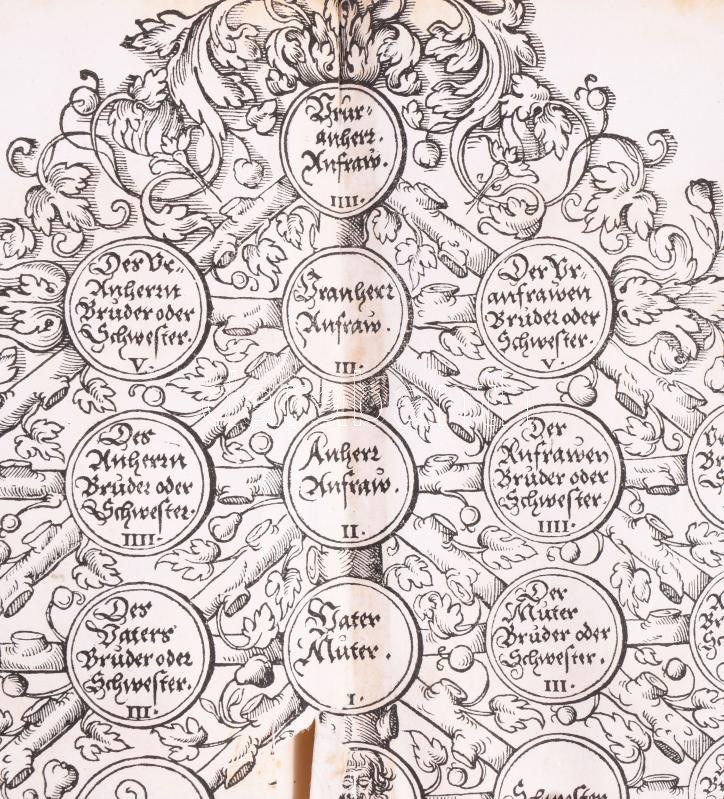 Vrur-
anherr.
Anfraw.
IIII.
Des Vr-
Anherrn
Bruder oder
Schwester.
V.
Vranherr
Anfraw.
III.
Der Vr-
anfrawen
Bruder oder
Schwester.
V.
Des
Anherrn
Bruder oder
Schwester.
IIII.
Anherr
Anfraw.
II.
Der
Anfrawen
Bruder oder
Schwester.
IIII.
Des
Vaters
Bruder oder
Schwester.
III.
Vater
Muter.
I.
Der
Muter
Bruder oder
Schwester.
III.